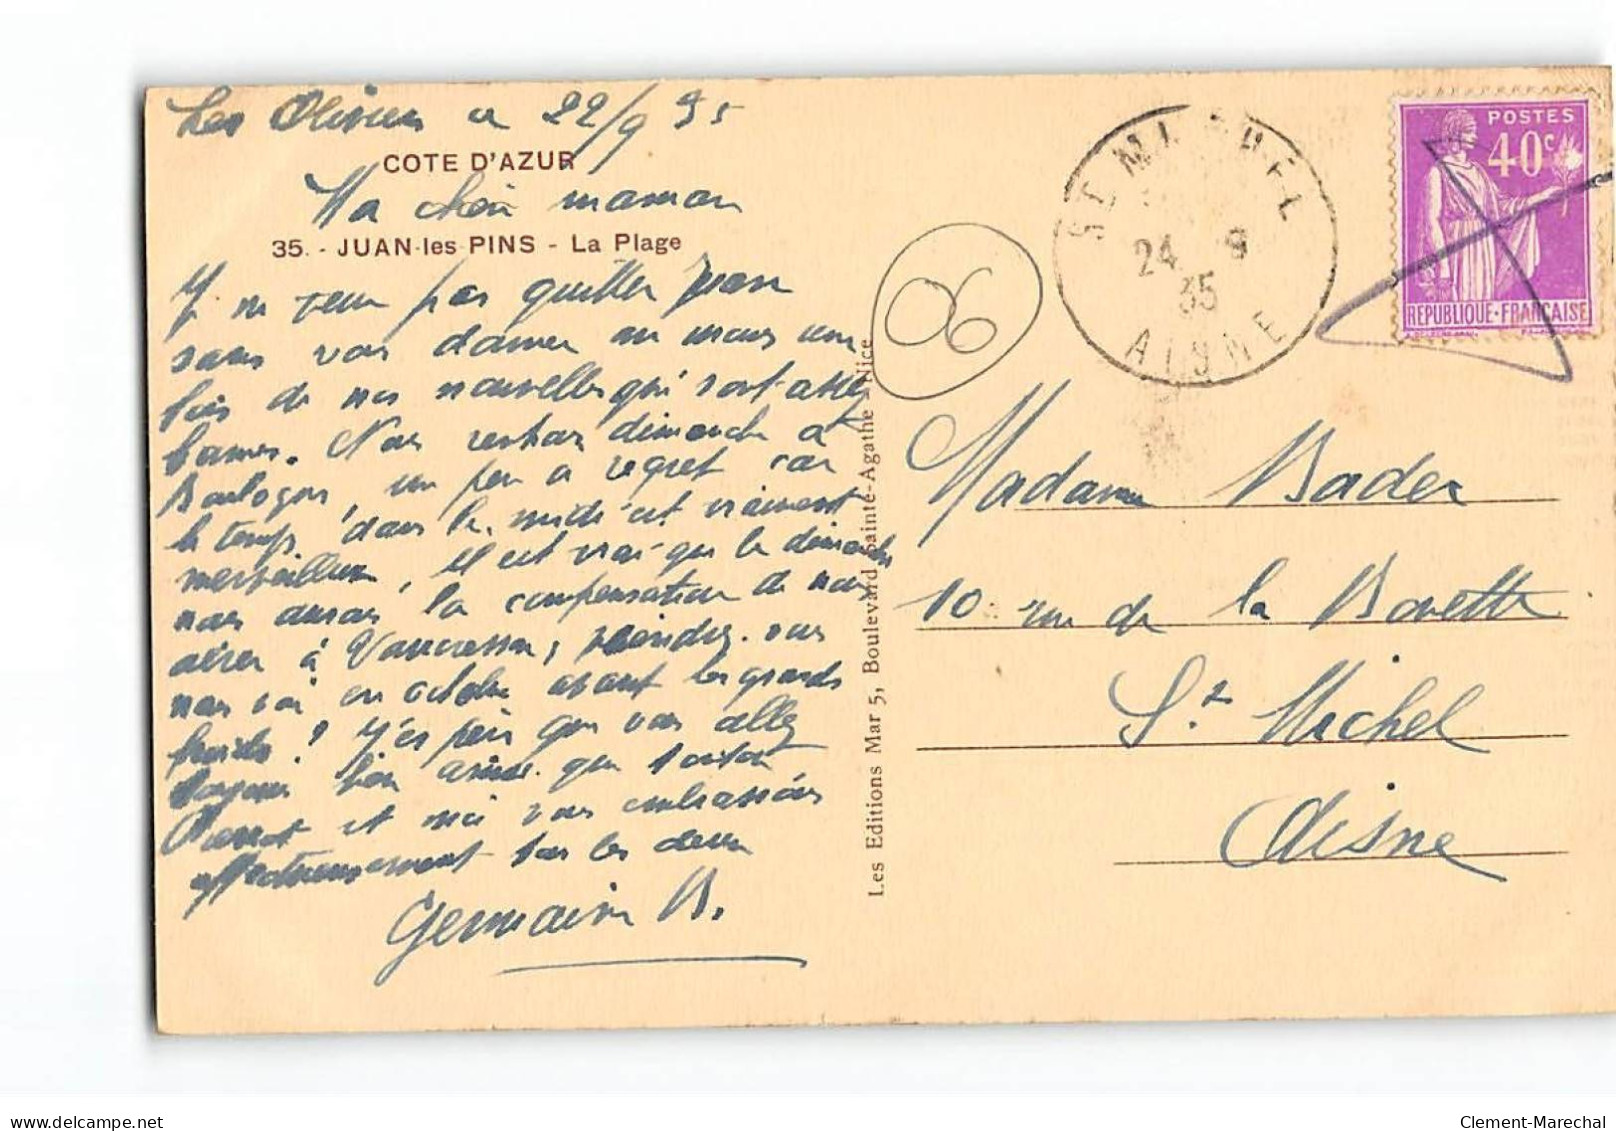 Les Oliviers le 22/9 35
COTE D'AZUR
Ma chère maman
35. - JUAN-les-PINS - La Plage
J ne veux pas quitter Juan
sans vous donner au moins une
fois de nos nouvelles qui sont assez
bonnes. Nous rentrons dimanche à
Boulogne, un peu à regret car
le temps dans le midi est vraiment
merveilleux, il est vrai que le dimanche
nous aurons la compensation de nous
aérer à Vaucresson, viendrez-vous
nous voir en octobre avant les grands
froids? J'espère que vous allez
toujours bien ainsi que tonton
Pierrot et moi vous embrassons
affectueusement tous les deux
Germaine B.
Les Editions Mar 5, Boulevard Sainte-Agathe Nice
06
ST MICHEL
24 9
35
AISNE
POSTES
40c
REPUBLIQUE·FRANÇAISE
Madame Bader
10 rue de la Bovette
St Michel
Aisne
delcampe.net
Clement-Marechal